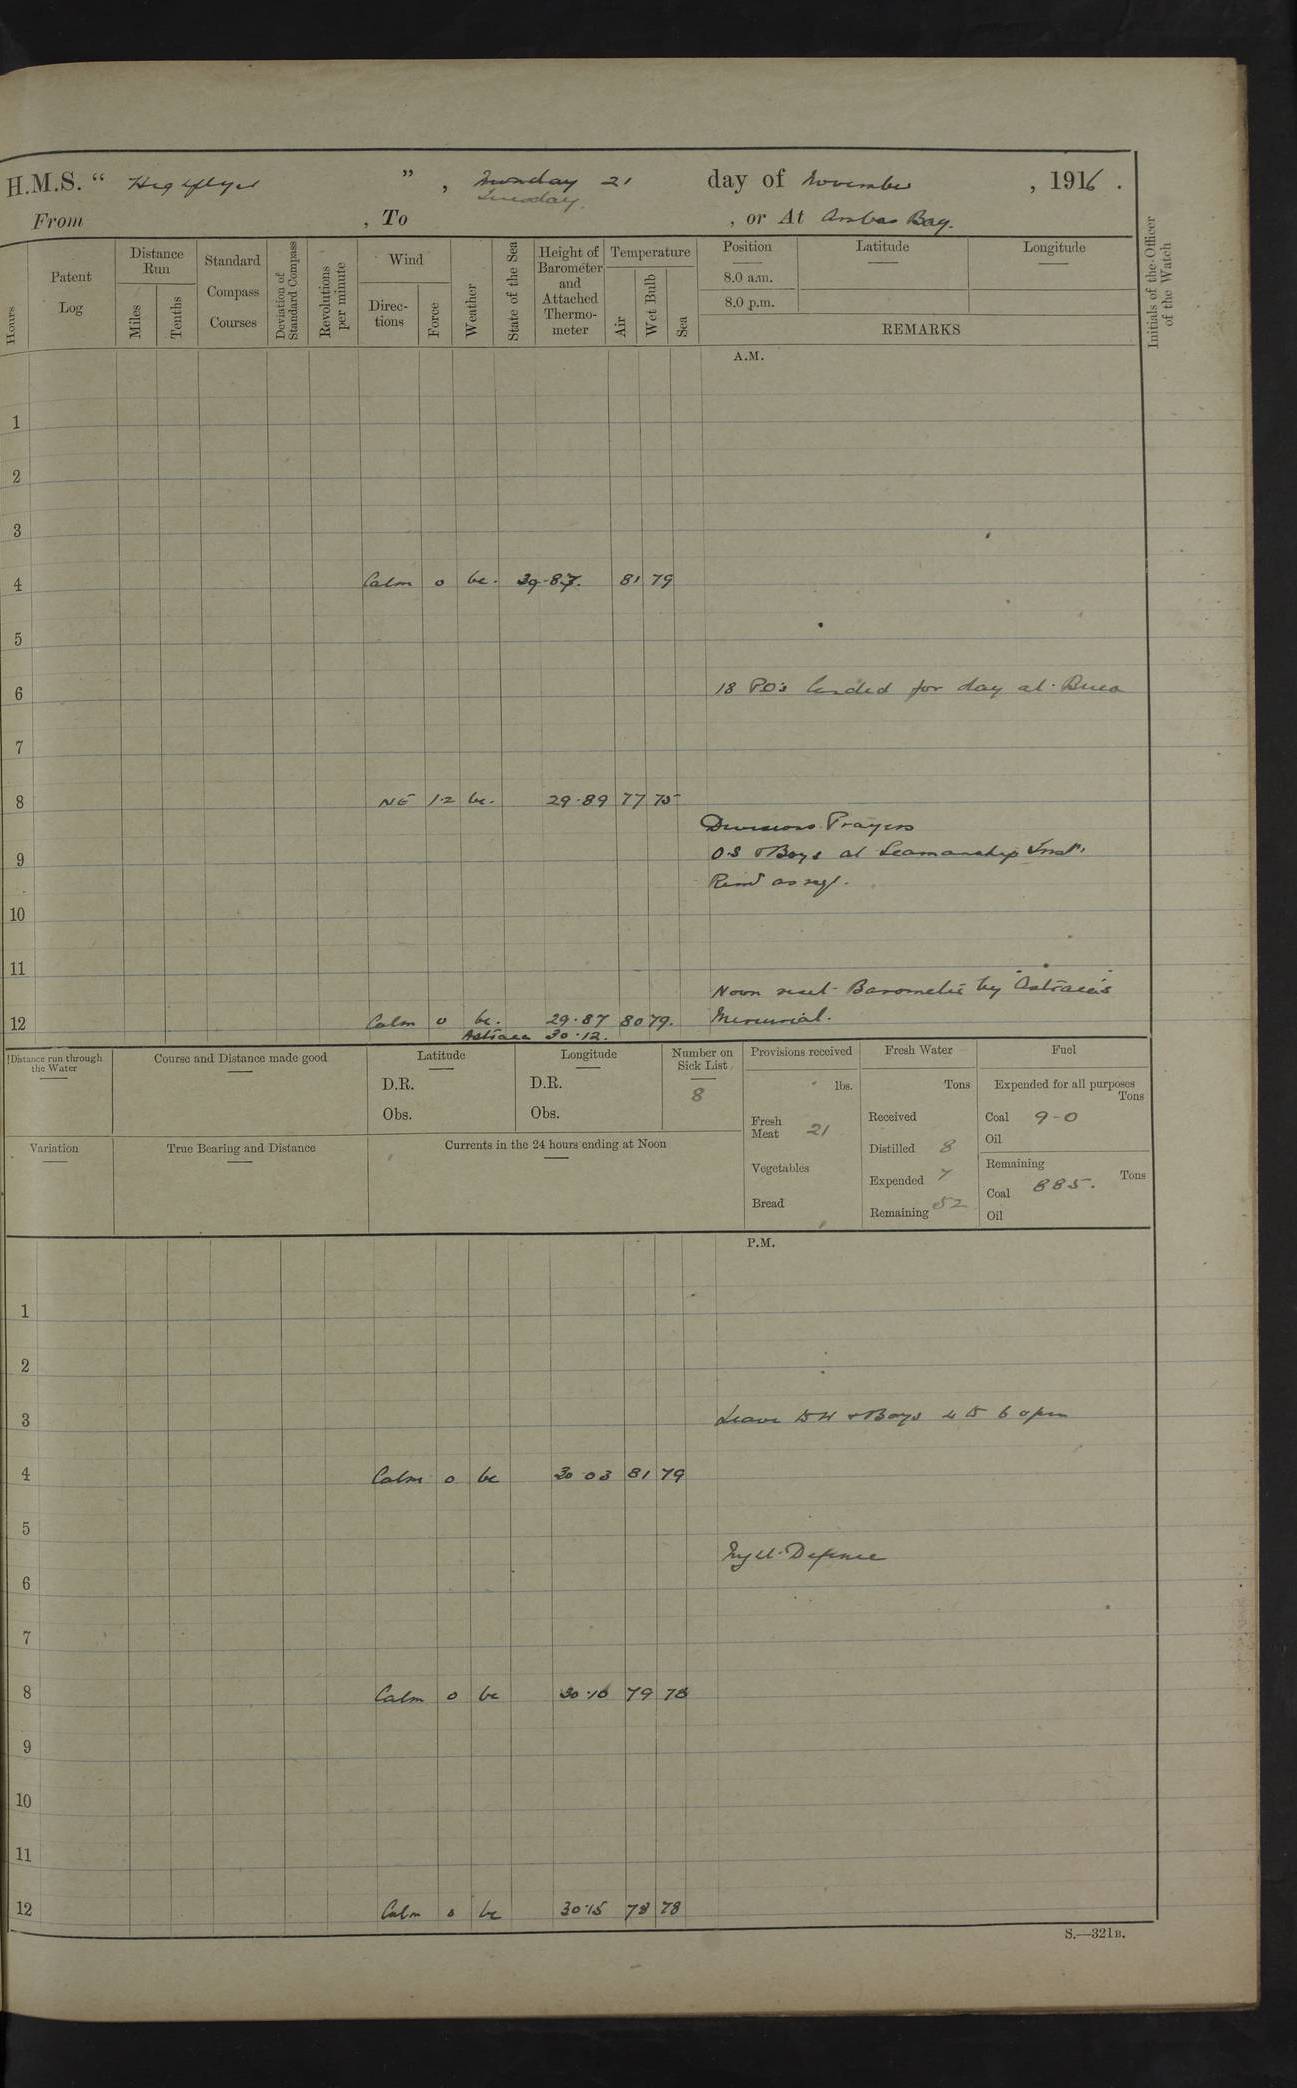 H.M.S. “ Highflyer ” , Monday 21 day of November , 1916 .
Tuesday.
From , To , or At Ambas Bay.
Hours
Patent Log
Distance Run
Miles
Tenths
Standard Compass Courses
Deviation of Standard Compass
Revolutions per minute
Wind
Direc- tions
Force
Weather
State of the Sea
Height of Barometer and Attached Thermo- meter
Temperature
Air
Wet Bulb
Sea
Position
8.0 a.m.
8.0 p.m.
Latitude
Longitude
REMARKS
Initials of the Officer of the Watch
A.M.
1
2
3
4 Calm 0 bc. 29.87. 81 79
5
6 18 PO's landed for day at Buea
7
8 NE 1.2 bc. 29.89 77 75
Divisions Prayers
9 O.S & Boys at Seamanship Inst.
Remd as reqd.
10
11
Noon reset Barometer by "Astraea's"
12 Calm 0 bc. 29.87 80 79. Mercurial.
Astraea 30.12.
Distance run through the Water
Course and Distance made good
Latitude
D.R.
Obs.
Longitude
D.R.
Obs.
Number on Sick List
8
Provisions received
lbs.
Fresh Meat 21
Vegetables
Bread
Fresh Water
Tons
Received
Distilled 8
Expended 7
Remaining 52
Fuel
Expended for all purposes
Tons
Coal 9-0
Oil
Remaining
Tons
Coal 885.
Oil
Variation
True Bearing and Distance
Currents in the 24 hours ending at Noon
P.M.
1
2
3 Leave to & Boys 4 to 6 pm
4 Calm 0 bc 30 03 81 79
5
Defence
6
7
8 Calm 0 bc 30.10 79 78
9
10
11
12 Calm 0 bc 30.15 78 78
S.—321B.